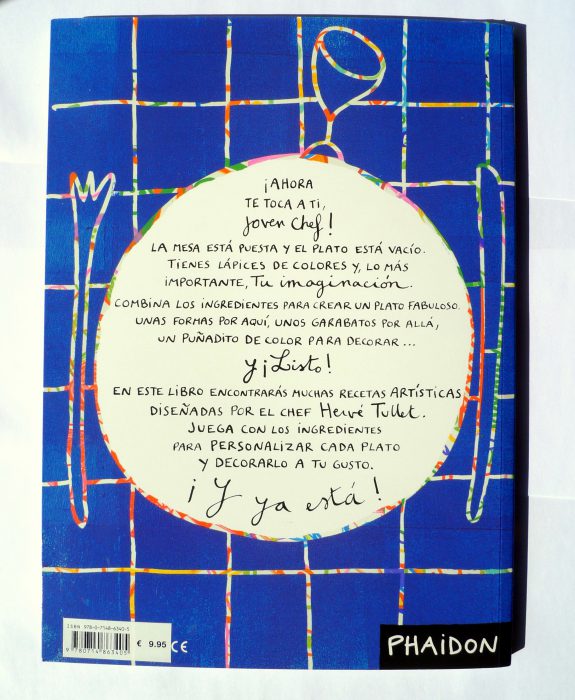 ¡AHORA
TE TOCA A TI,
Joven Chef!
LA MESA ESTÁ PUESTA Y EL PLATO ESTÁ VACÍO.
TIENES LÁPICES DE COLORES Y, LO MÁS
IMPORTANTE, Tu imaginación.
COMBINA LOS INGREDIENTES PARA CREAR UN PLATO FABULOSO.
UNAS FORMAS POR AQUÍ, UNOS GARABATOS POR ALLÁ,
UN PUÑADITO DE COLOR PARA DECORAR ...
Y ¡Listo!
EN ESTE LIBRO ENCONTRARÁS MUCHAS RECETAS ARTÍSTICAS
DISEÑADAS POR EL CHEF Hervé Tullet.
JUEGA CON LOS INGREDIENTES
PARA PERSONALIZAR CADA PLATO
Y DECORARLO A TU GUSTO.
¡Y ya está!
ISBN 978-0-7148-6340-5
9 780714 863405
€ 9.95
CE
PHAIDON